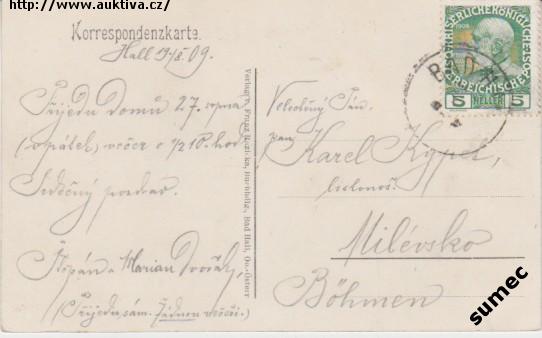 http://www.auktiva.cz/
Korrespondenzkarte.
Hall 19/8.09.
Přijedu Domů 27. srpna
(v pátek) večer o 1/2 10. hod
Srdečný pozdrav.
Štěpán a Marian Dvořák
(Přijedu sám. žádnou
Verlag v. Franz Buchhdlg., Bad Hall, Ob.-Österr
KAISERLICHE KÖNIGLICHE
ÖSTERREICHISCHE POST
1908
5 HELLER 5
BAD H
Velectěný Pán.
pan
Karel Kypet,
Milévsko
Böhmen
sumec